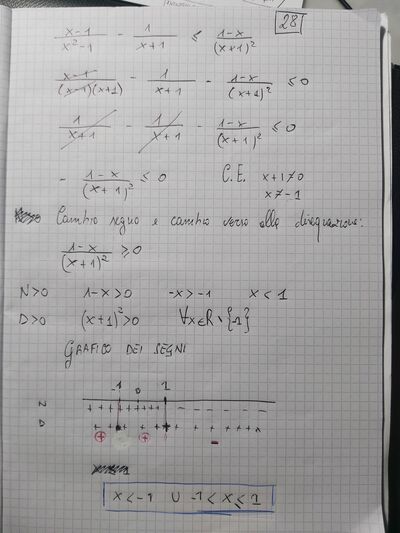 28
x-1/x²-1 - 1/x+1 ≤ 1-x/(x+1)²
x-1/(x-1)(x+1) - 1/x+1 - 1-x/(x+1)² ≤ 0
1/x+1 - 1/x+1 - 1-x/(x+1)² ≤ 0
- 1-x/(x+1)² ≤ 0 C.E. x+1≠0
x≠-1
Cambio segno e cambio verso alla disequazione:
1-x/(x+1)² ≥ 0
N>0 1-x>0 -x>-1 x<1
D>0 (x+1)²>0 ∀x∈R\{1}
GRAFICO DEI SEGNI
-1 0 1
N + + + + + + + + + - - - - - -
D + + + + + + + + + + +
+ + -
x<-1 ∪ -1<x≤1